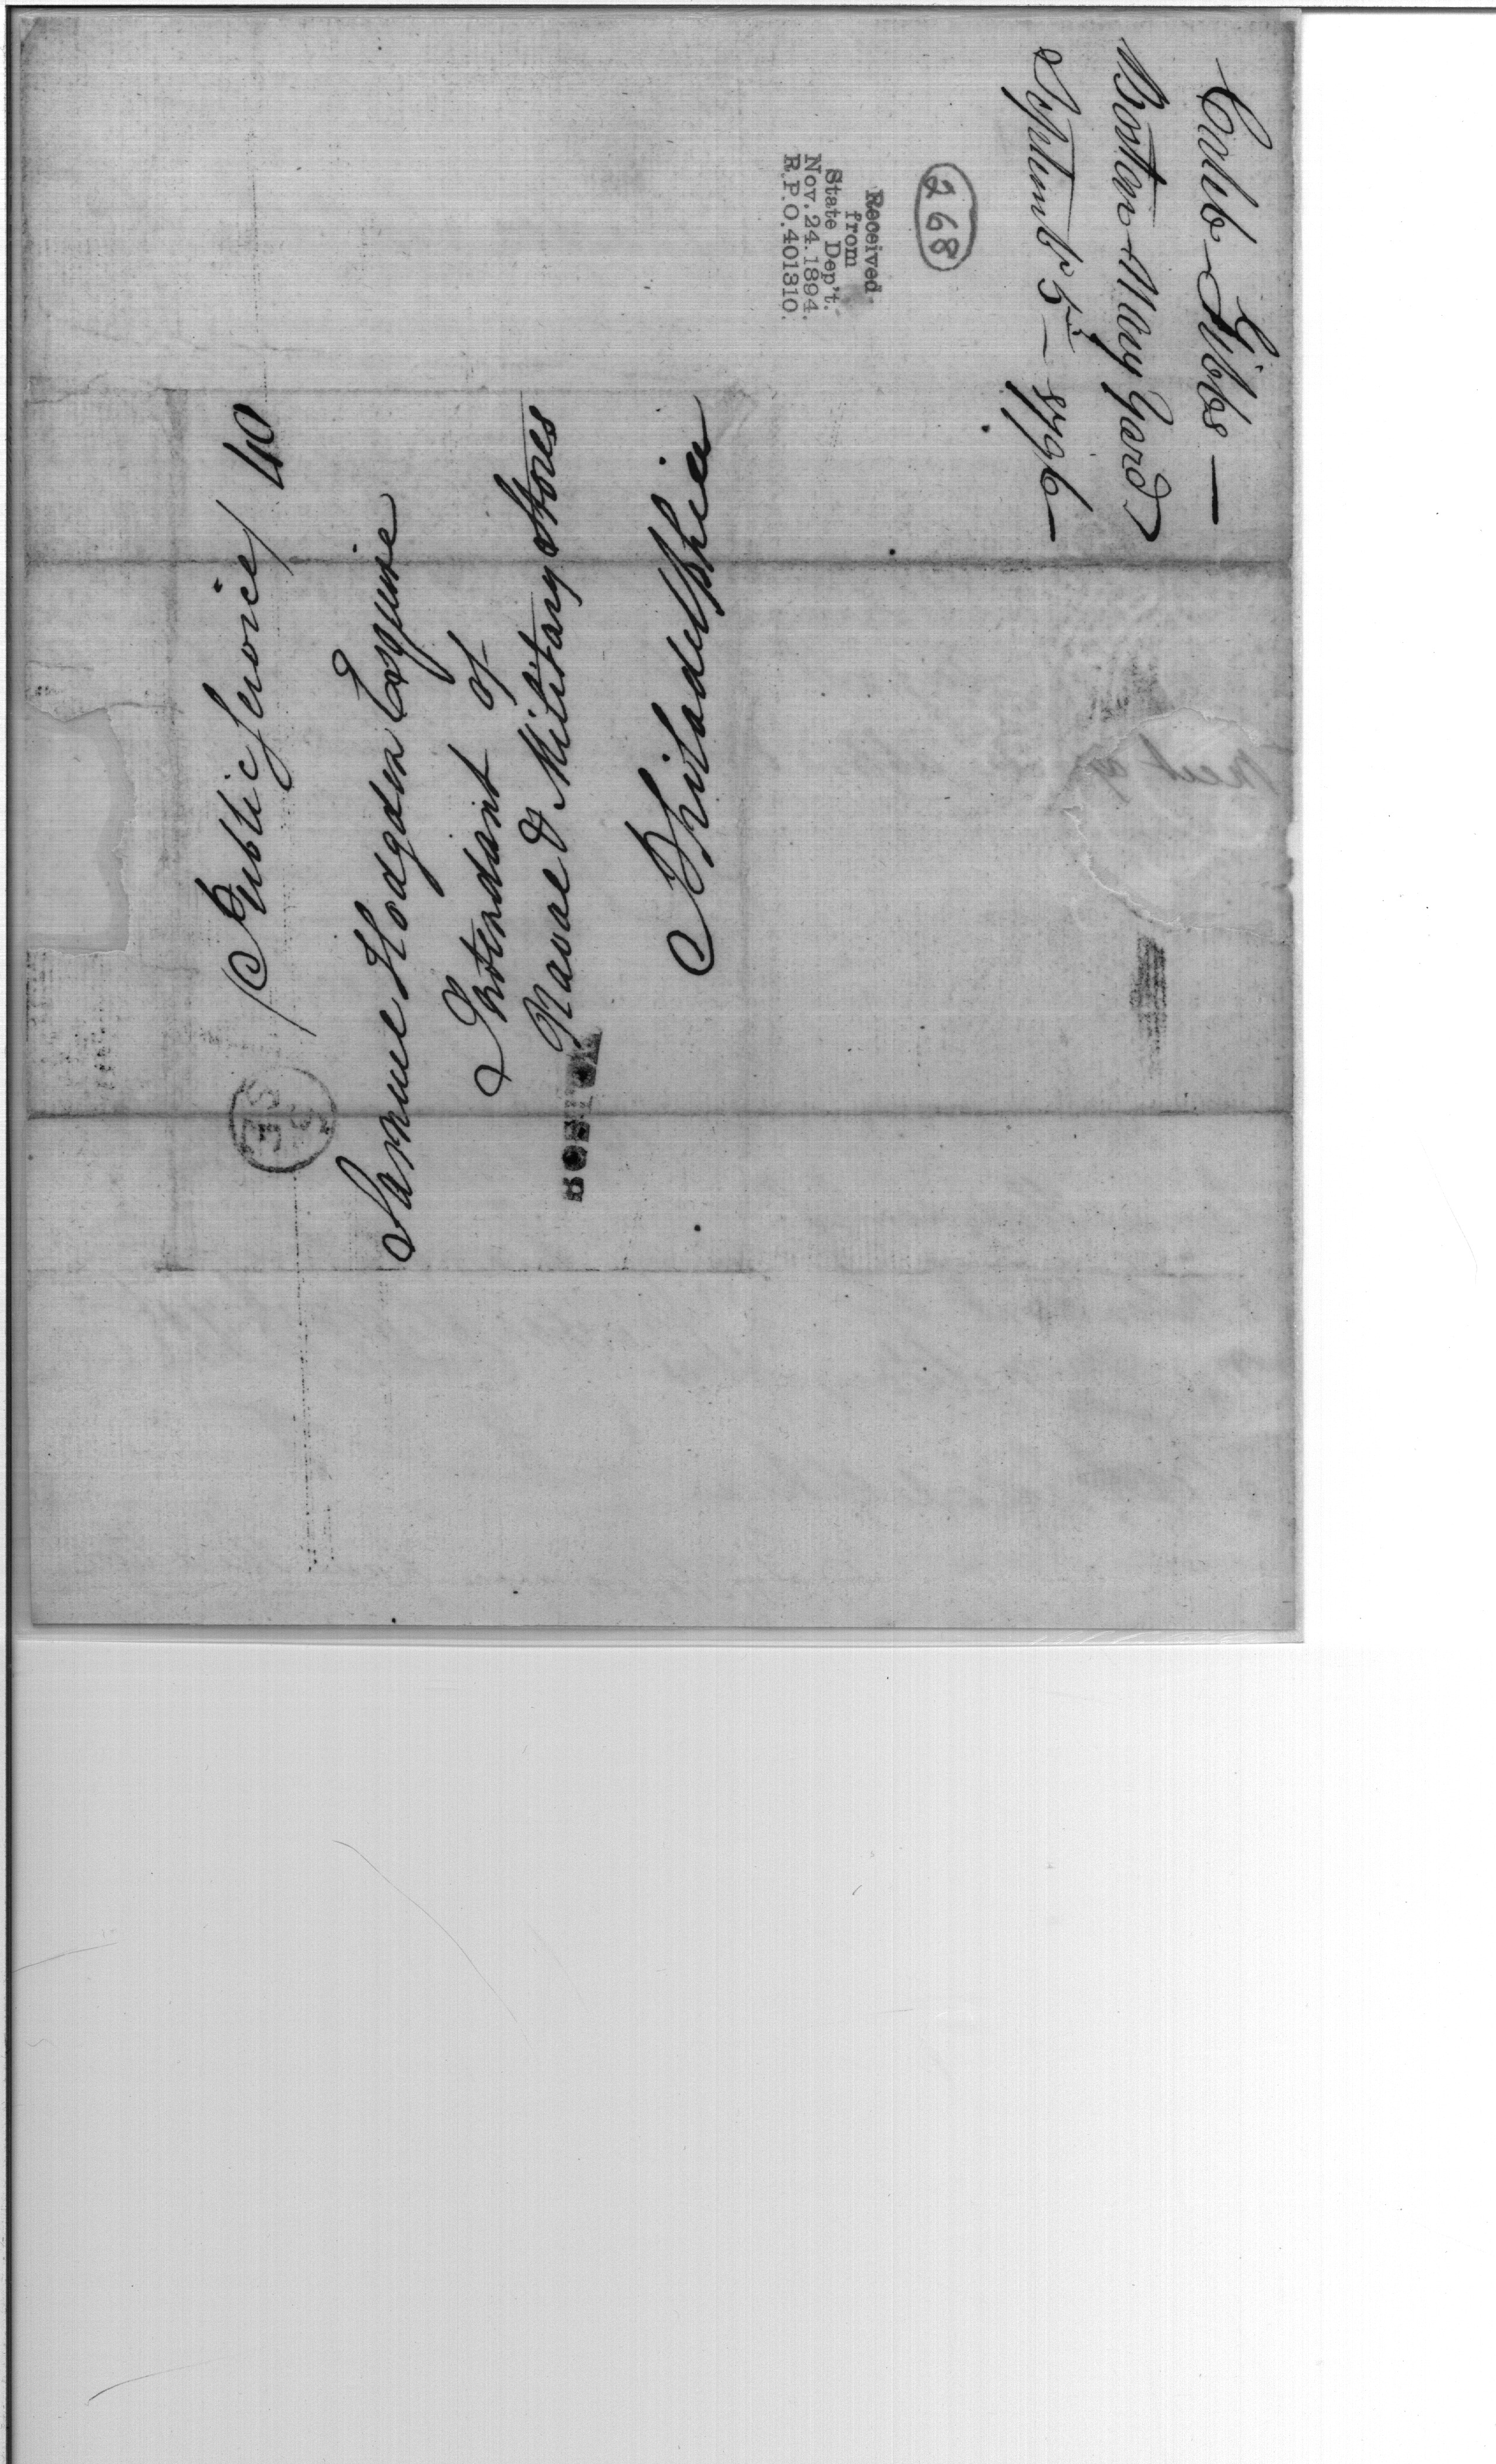 Caleb Gibbs —
Boston Navy Yard
Septemb.r 5th — 1796 —
268
Received
from
State Dep't.
Nov. 24. 1894.
R.P.O. 401310.
(Public Service) 40
Samuel Hodgdon Esquire
Intendant of
Naval & Military Stores
Philadelphia
BOSTON
SE